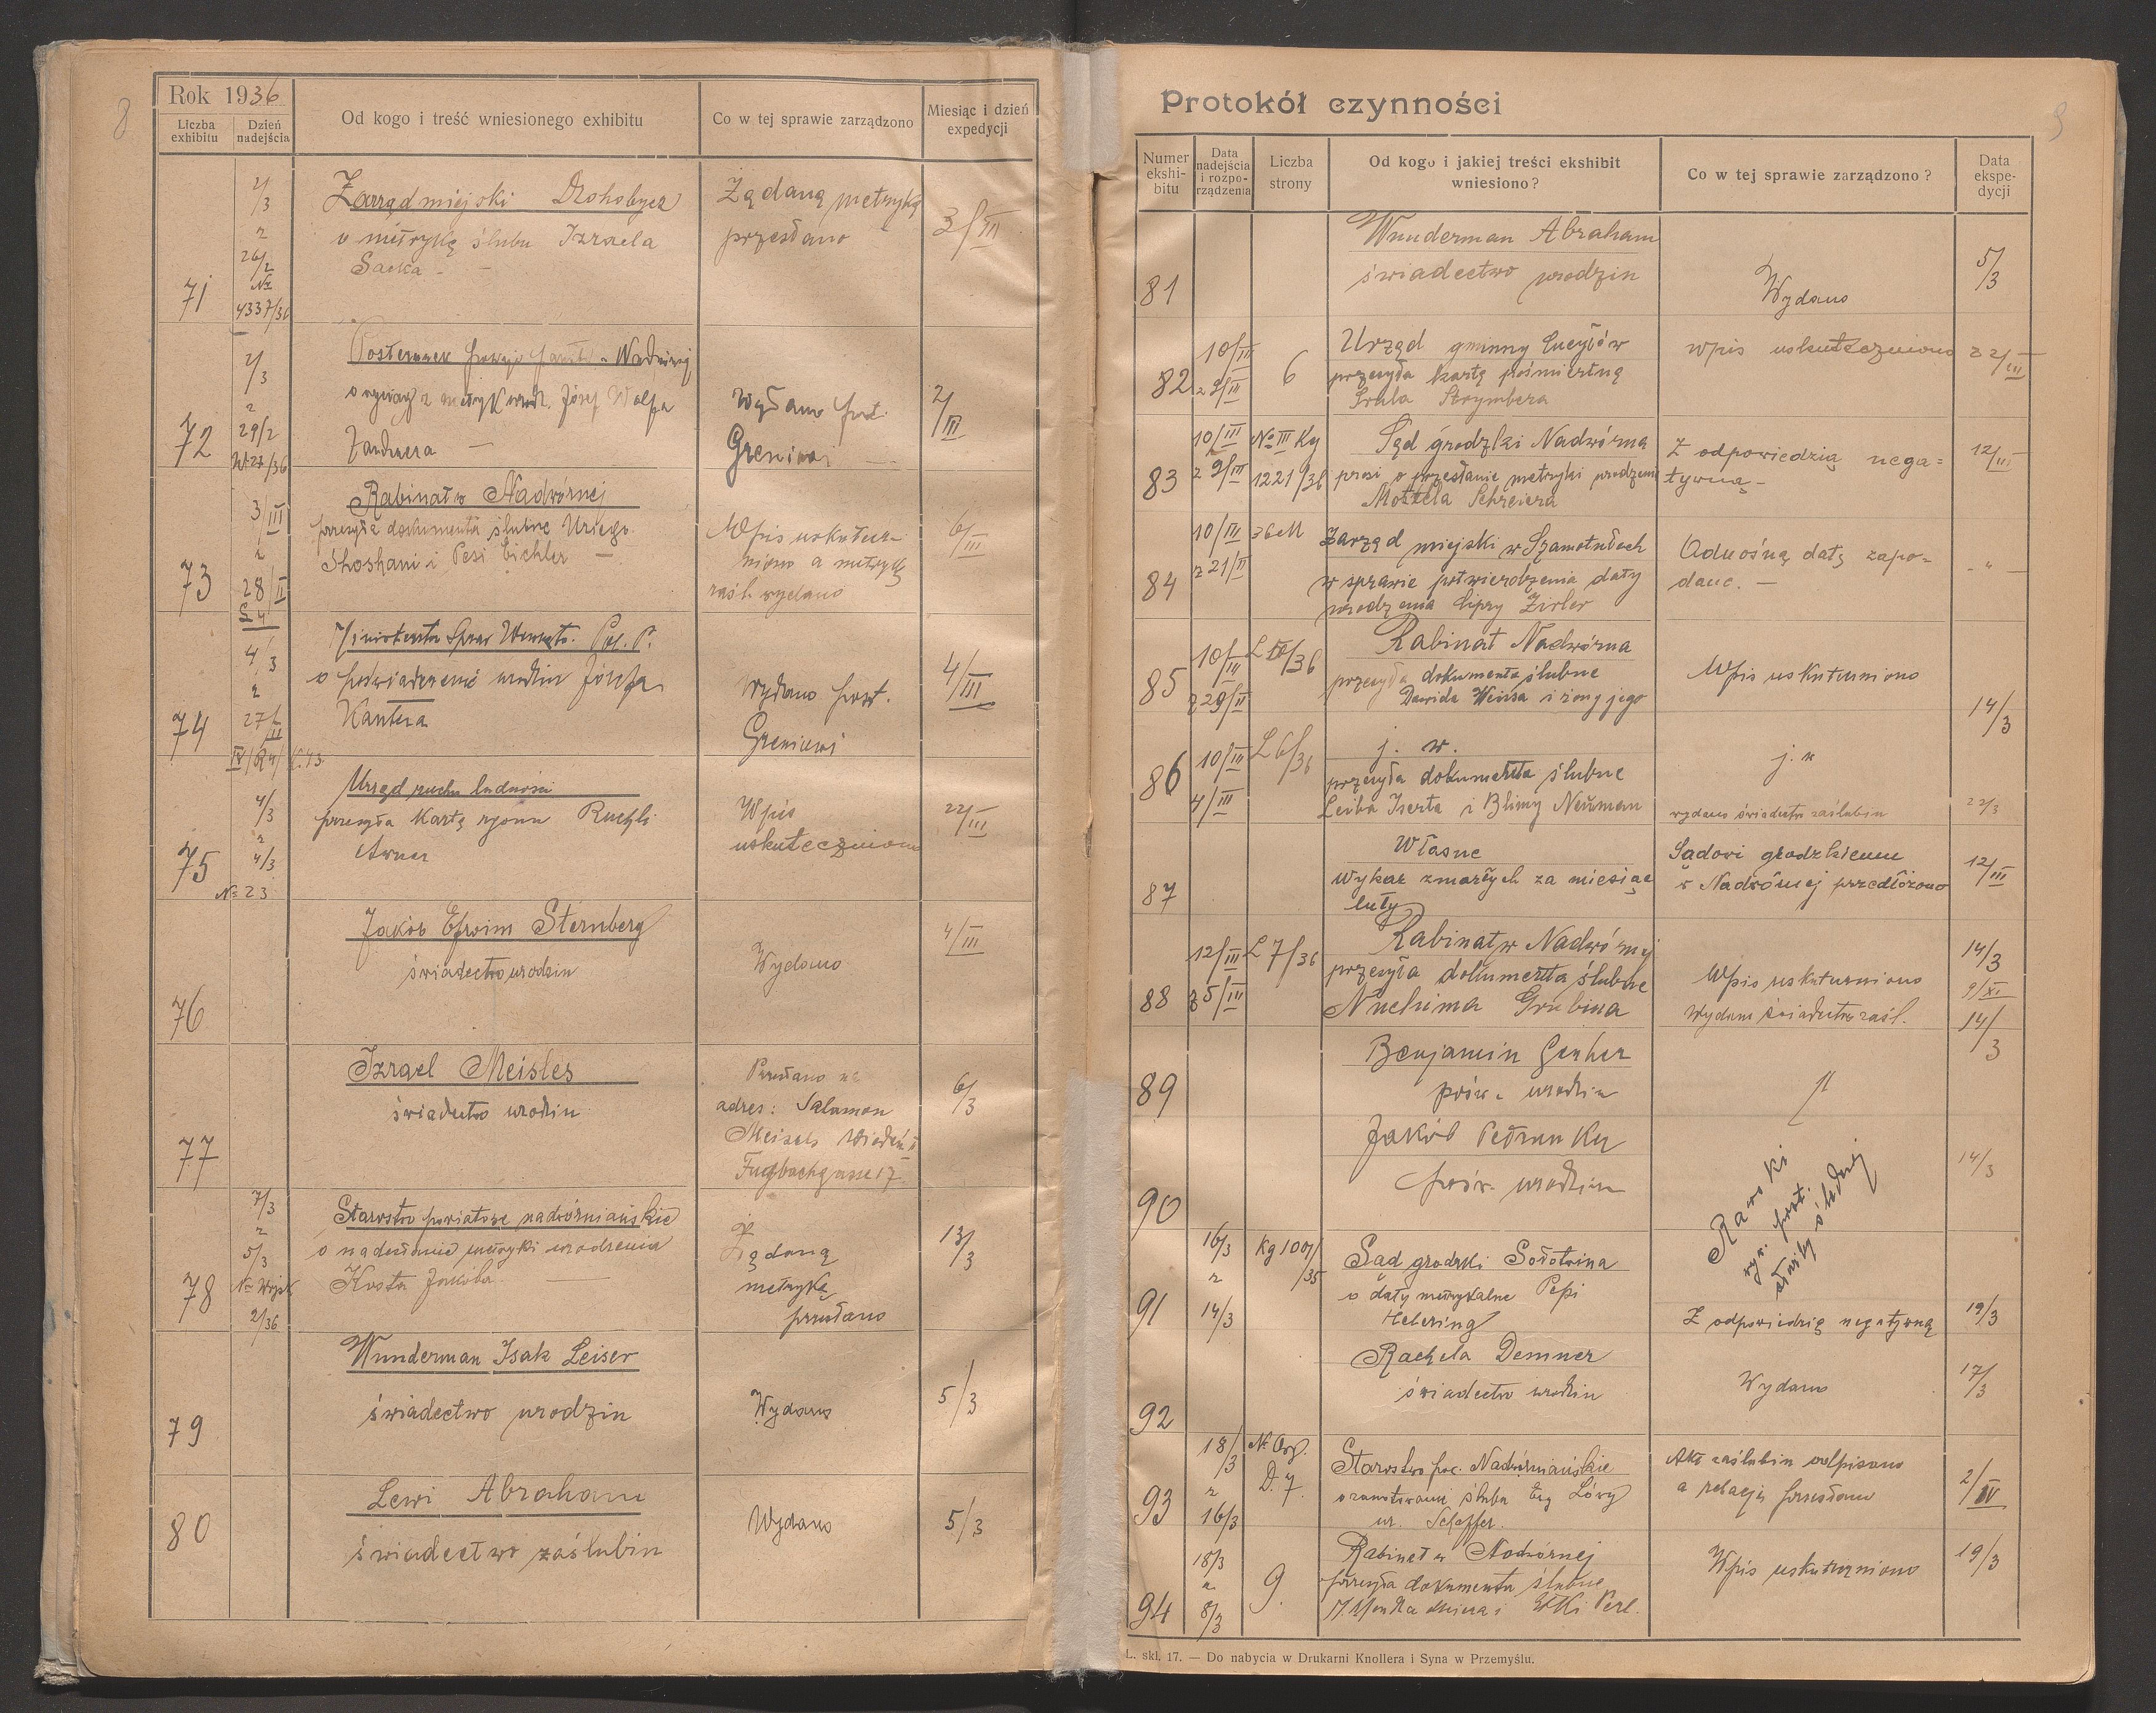 8
Rok 1936
Liczba exhibitu
Dzień nadejścia
Od kogo i treść wniesionego exhibitu
Co w tej sprawie zarządzono
Miesiąc i dzień expedycji
71
2/3
z
26/2
№
4337/36
Zarząd miejski Drohobycz
o metrykę ślubu Izraela
Sacka -
Żądaną metrykę
przesłano
3/III
72
2/3
z
29/2
№ 27/36
Posterunek
Zandwera —
Wydano post.
2/III
73
3/III
z
28/II
L 4
Rabinat w Nadwórnej
przesyła dokumenta ślubne Uriego
Shoshani i Pesi Eichler —
Wpis uskutecz-
niono a metrykę
zaśl. wydano
6/III
74
4/3
z
27/II
Ministerstwo Spraw Wewnętr.
o poświadczenie urodzin Józefa
Kantera
Wydano post.
4/III
75
4/3
z
4/3
№ 23
Urząd ruchu ludności
przesyła Kartę zgonu Ruchli
Awner
Wpis
uskuteczniono
22/III
76
Jakób Efroim Sternberg
świadectwo urodzin
Wydano
4/III
77
Izrael Meisles
świadectwo urodzin
Przesłano na
adres: Salamon
Meisels Wiedeń II
Fugbachgasse 17
6/3
78
7/3
z
5/3
№ Wojsk
2/36
Starostwo powiatowe nadwórniańskie
o nadesłanie metryki urodzenia
Kosta Jakóba
Żądaną
metrykę
przesłano
13/3
79
Wunderman Isak Leiser
świadectwo urodzin
Wydano
5/3
80
Lewi Abraham
świadectwo zaślubin
Wydano
5/3
Protokół czynności
9
Numer ekshi-bitu
Data nadejścia i rozpo-rządzenia
Liczba strony
Od kogo i jakiej treści ekshibit wniesiono?
Co w tej sprawie zarządzono?
Data ekspe-dycji
81
Wunderman Abraham
świadectwo urodzin
Wydano
5/3
82
10/III
z 9/III
6
Urząd gminny Łucyłów
przesyła kartę pośmiertną
Srula Strymbera
Wpis uskuteczniono
22/III
83
10/III
z 9/III
№ III Kg
1221/36
Sąd grodzki Nadwórna
prosi o przesłanie metryki urodzenia
Moszela Schreiera
Z odpowiedzią nega=
tywną -
12/III
84
10/III
z 21/II
36 M
Zarząd miejski w Szamotułach
w sprawie potwierdzenia daty
urodzenia Lipry Zirler
Odnośną datę zapo-
dano. —
- " -
85
10/III
z 29/II
Rabinat Nadwórna
przesyła dokumenta ślubne
Dawida Weissa i żony jego
Wpis uskuteczniono
14/3
86
10/III
4/III
L 6/36
j. w.
przesyła dokumenta ślubne
Leiba Iserta i Blimy Neuman
j. w
wydano świadectwo zaślubin
22/3
87
Własne
Wykaz zmarłych za miesiąc
luty
Sądowi grodzkiemu
w Nadwórnej przedłożono
12/III
88
12/III
z 5/III
L 7/36
Rabinat w Nadwórnej
przesyła dokumenta ślubne
Nuchima Grubina
Wpis uskuteczniono
Wydano świadectwo zaśl.
14/3
9/XI
14/3
89
Benjamin Gerber
pośw. urodzin
90
Jakób Petranker
pośw. urodzin
14/3
91
16/3
z
14/3
Kg 1007/35
Sąd grodzki Sołotwina
o daty metrykalne Pepi
Hebering
Z odpowiedzią negatywną
19/3
92
Rachela Demner
świadectwo urodzin
Wydano
17/3
93
18/3
z
16/3
№ Org.
D. 7.
Starostwo pow. Nadwórniańskie
o zanotowanie ślubu Ery Löwy
ur. Scheffer.
Akt zaślubin odpisano
a relację przesłano
2/IV
94
18/3
z
8/3
9.
Rabinat w Nadwórnej
przesyła dokumenta ślubne
Perl.
Wpis uskuteczniono
19/3
L. skł. 17. — Do nabycia w Drukarni Knollera i Syna w Przemyślu.